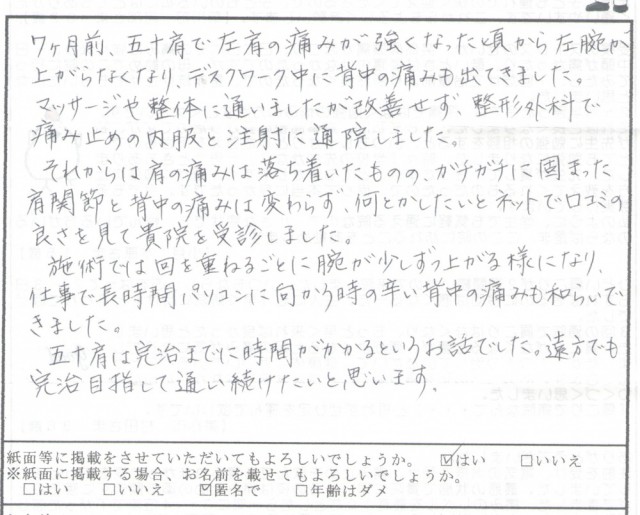 7ヶ月前、五十肩で左肩の痛みが強くなった頃から左腕が
上がらなくなり、デスクワーク中に背中の痛みも出てきました。
マッサージや整体に通いましたが改善せず、整形外科で
痛み止めの内服と注射に通院しました。
それからは肩の痛みは落ち着いたものの、ガチガチに固まった
肩関節と背中の痛みは変わらず、何とかしたいとネットで口コミの
良さを見て貴院を受診しました。
施術では回を重ねるごとに腕が少しずつ上がる様になり、
仕事で長時間パソコンに向かう時の辛い背中の痛みも和らいで
きました。
五十肩は完治までに時間がかかるというお話でした。遠方でも
完治目指して通い続けたいと思います。
紙面等に掲載をさせていただいてもよろしいでしょうか。 ☑はい □いいえ
※紙面に掲載する場合、お名前を載せてもよろしいでしょうか。
□はい □いいえ ☑匿名で □年齢はダメ